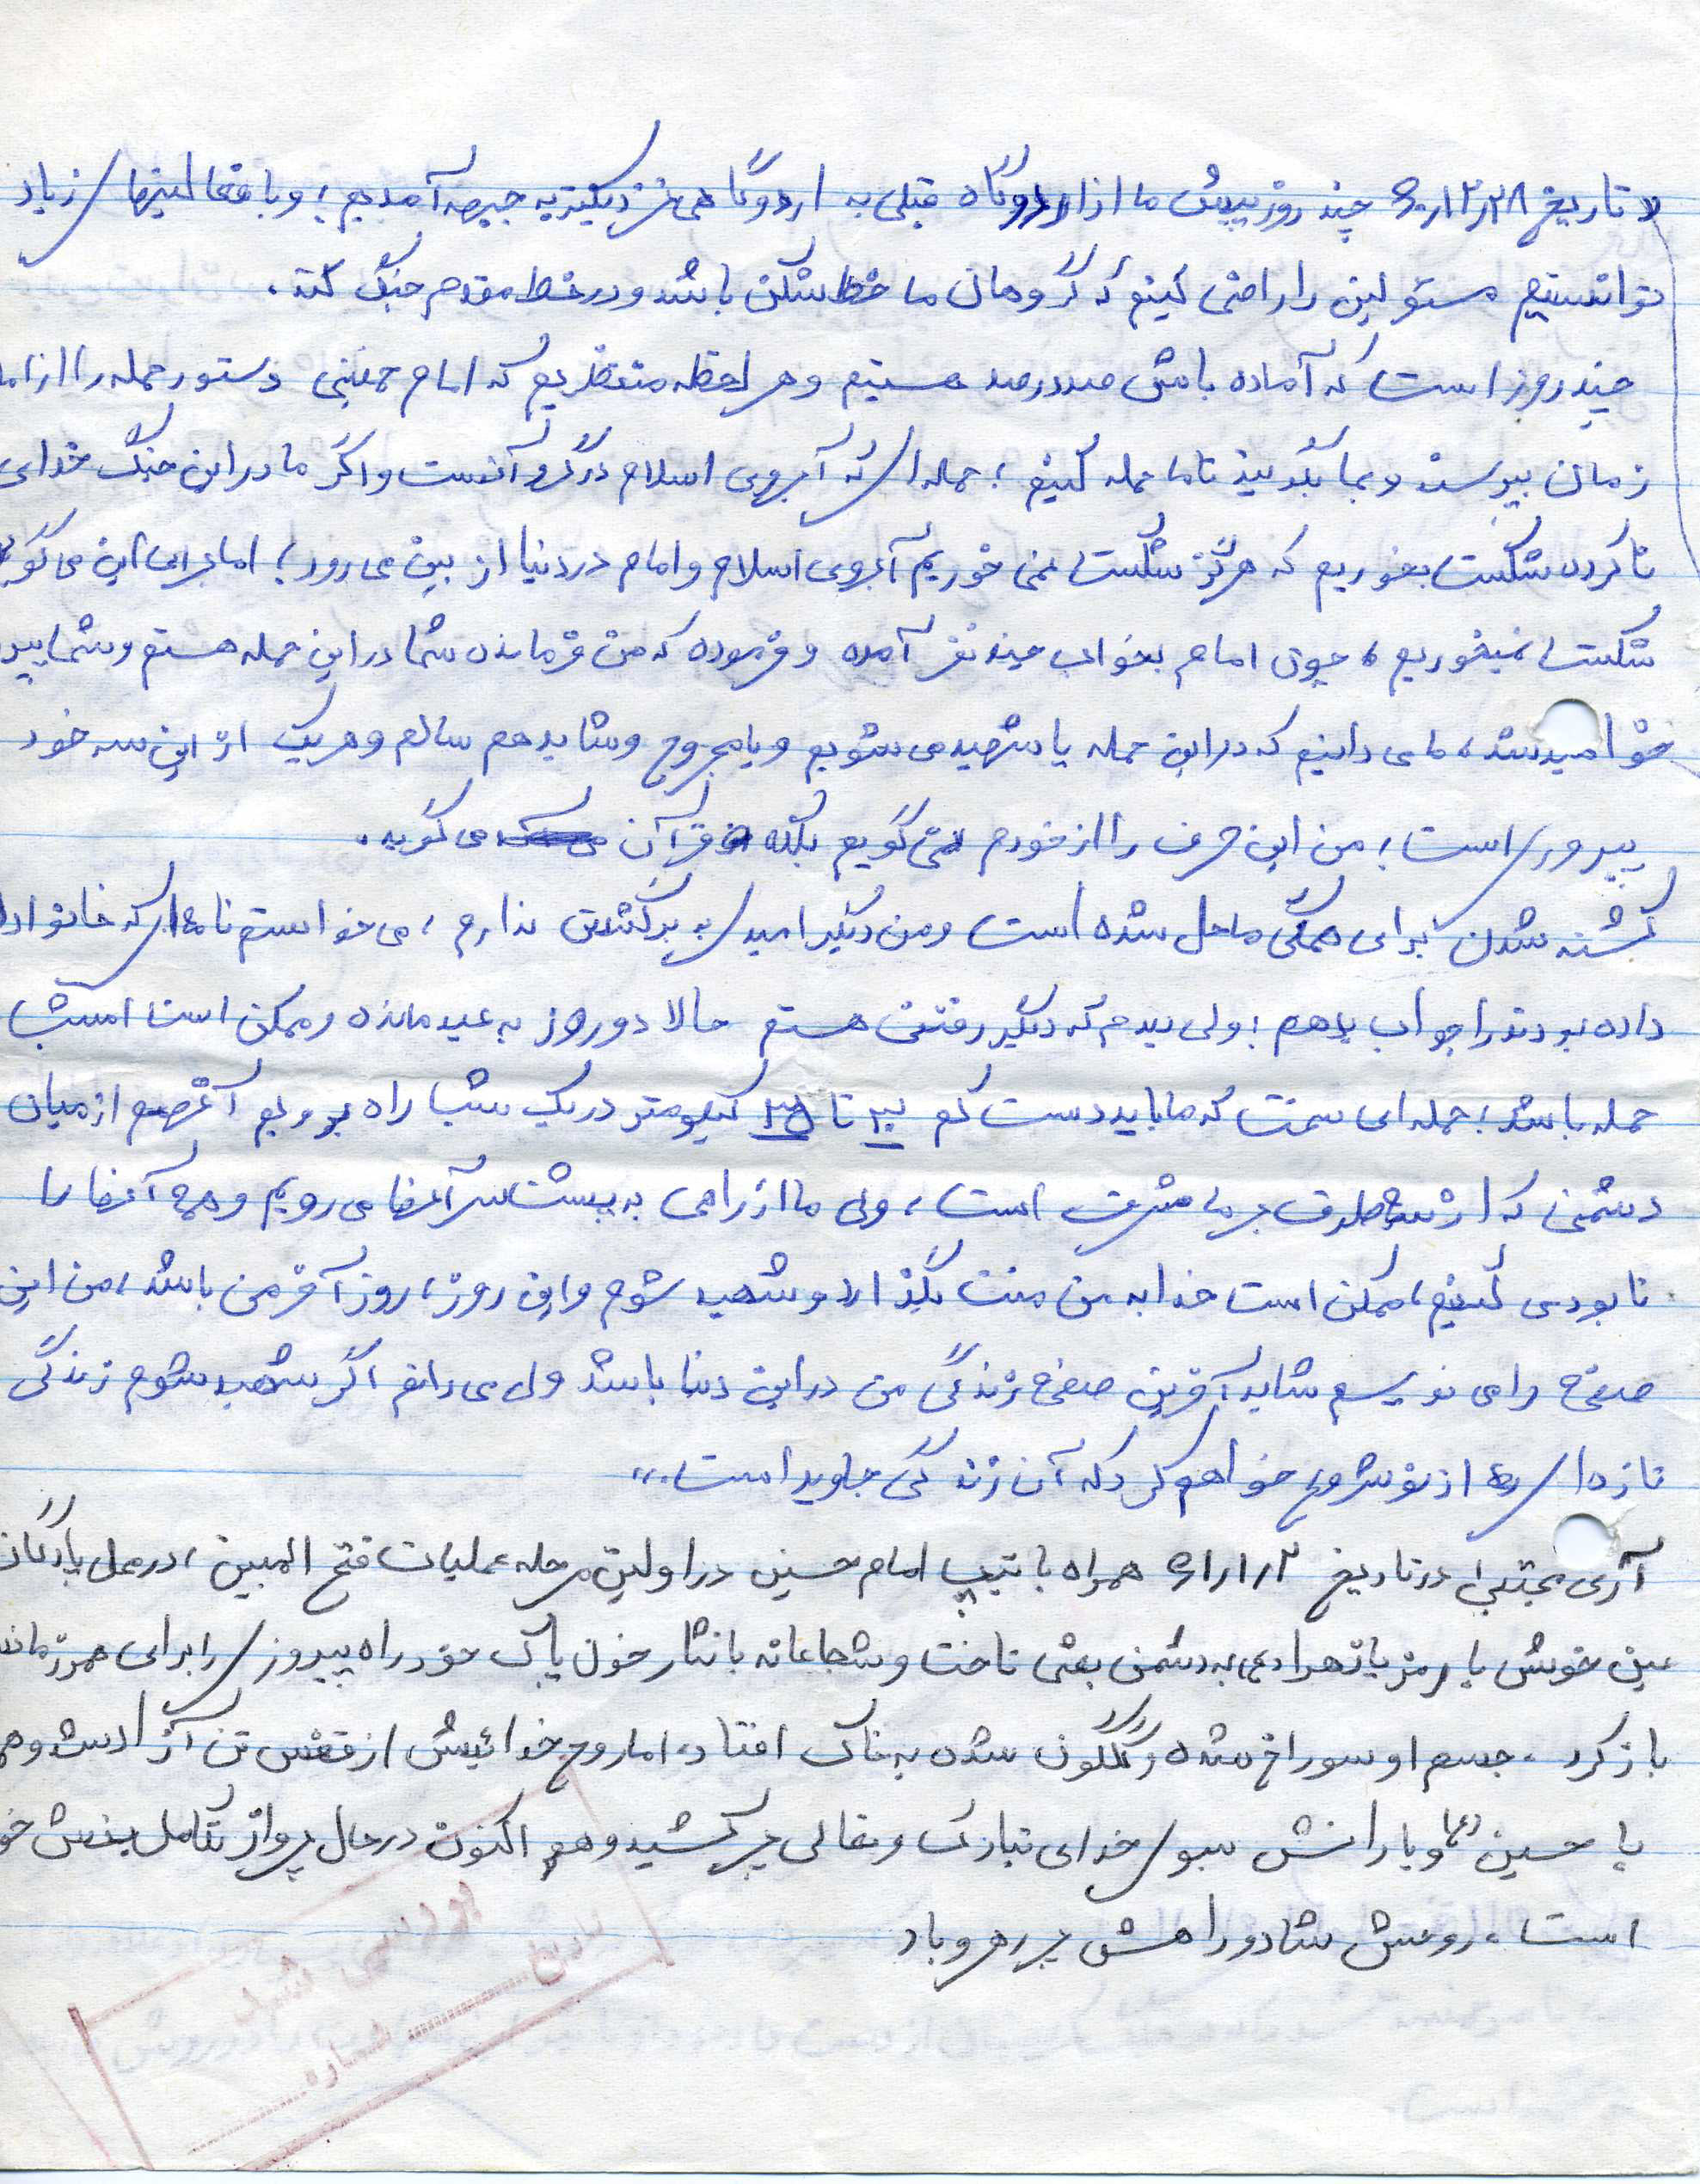 « تاریخ ۶۰٫۱۲٫۲۸ چند روز پیش ما از اردوگاه قبلی به اردوگاهی نزدیکتر به جبهه آمدیم ؛ و با فعالیتهای زیاد
توانستیم مسئولین را راضی کنیم که گروهان ما خط شکن باشد و در خط مقدم جنگ کند .
چند روز است که آماده باش صددرصد هستیم و هر لحظه منتظریم که امام خمینی دستور حمله را از امام
زمان بپرسد و بما بگویند تا ما حمله کنیم ؛ حمله‌ای که آبروی اسلام در گرو آنست و اگر ما در این جنگ خدای
نا کرده شکست بخوریم که هرگز شکست نمی خوریم آبروی اسلام و امام در دنیا از بین می رود ؛ اما برای این می گویم
شکست نمیخوریم ، چون امام بخواب چند نفر آمده و فرموده که من فرمانده شما در این حمله هستم و شما پیروز
خواهید شد ، ما می دانیم که در این حمله یا شهید می شویم و یا مجروح و شاید هم سالم و هر یک از این سه خود
پیروزی است ؛ من این حرف را از خودم نمی گویم بلکه قرآن می گوید .
کشته شدن برای همگی ما حل شده است و من دیگر امیدی به برگشتن ندارم ، می خواستم نامه‌ای که خانواده
داده بودند را جواب بدهم ؛ ولی دیدم که دیگر رفتنی هستم حالا دو روز به عید مانده و ممکن است امشب
حمله باشد ؛ حمله ای سخت که ما باید دست کم ۲۰ تا ۲۵ کیلومتر در یک شب راه برویم آنهم از میان
دشمنی که از سه طرف بر ما مشرف است ، ولی ما از راهی به پشت سر آنها می رویم و همه آنها را
نابود می کنیم ، ممکن است خدا به من منت بگذارد و شهید شوم و این روز ، روز آخر من باشد ، من این
صفحه را می نویسم شاید آخرین صفحه زندگی من در این دنیا باشد ولی می دانم اگر شهید شوم زندگی
تازه‌ای را از نو شروع خواهم کرد که آن زندگی جاوید است . »
آری مجتبی در تاریخ ۶۱٫۱٫۲ همراه با تیپ امام حسین در اولین مرحله عملیات فتح المبین ، در محل پادگان
عین خوش با رمز یا زهرا به دشمن بعثی تاخت و شجاعانه با نثار خون پاک خود راه پیروزی را برای همرزمانش
باز کرد . جسم او سوراخ شده و گلگون شده به خاک افتاد ، اما روح خدائیش از قفس تن آزاد شد و همراه
با حسین (ع) و یارانش بسوی خدای تبارک و تعالی پر کشید و هم اکنون در حال پرواز تکامل بخش خود
است ، روحش شاد و راهش پر رهرو باد
بررسی شد
تاریخ
شماره